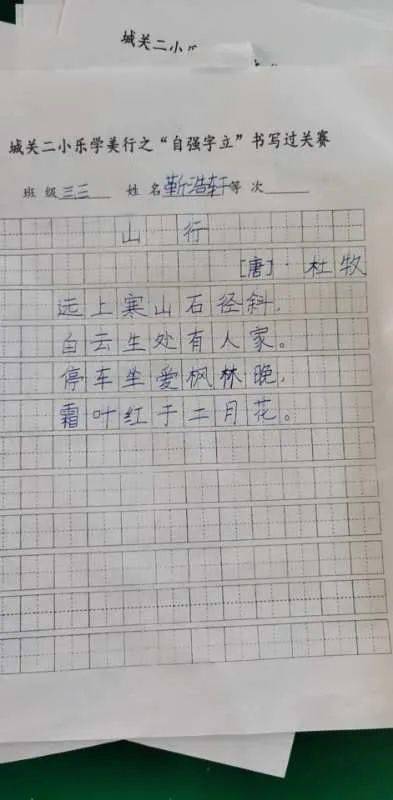 城关二小
城关二小乐学美行之“自强字立”书写过关赛
班 级 三三 姓 名 靳浩轩 等 次
山 行
[唐]·杜牧
远上寒山石径斜,
白云生处有人家。
停车坐爱枫林晚,
霜叶红于二月花。